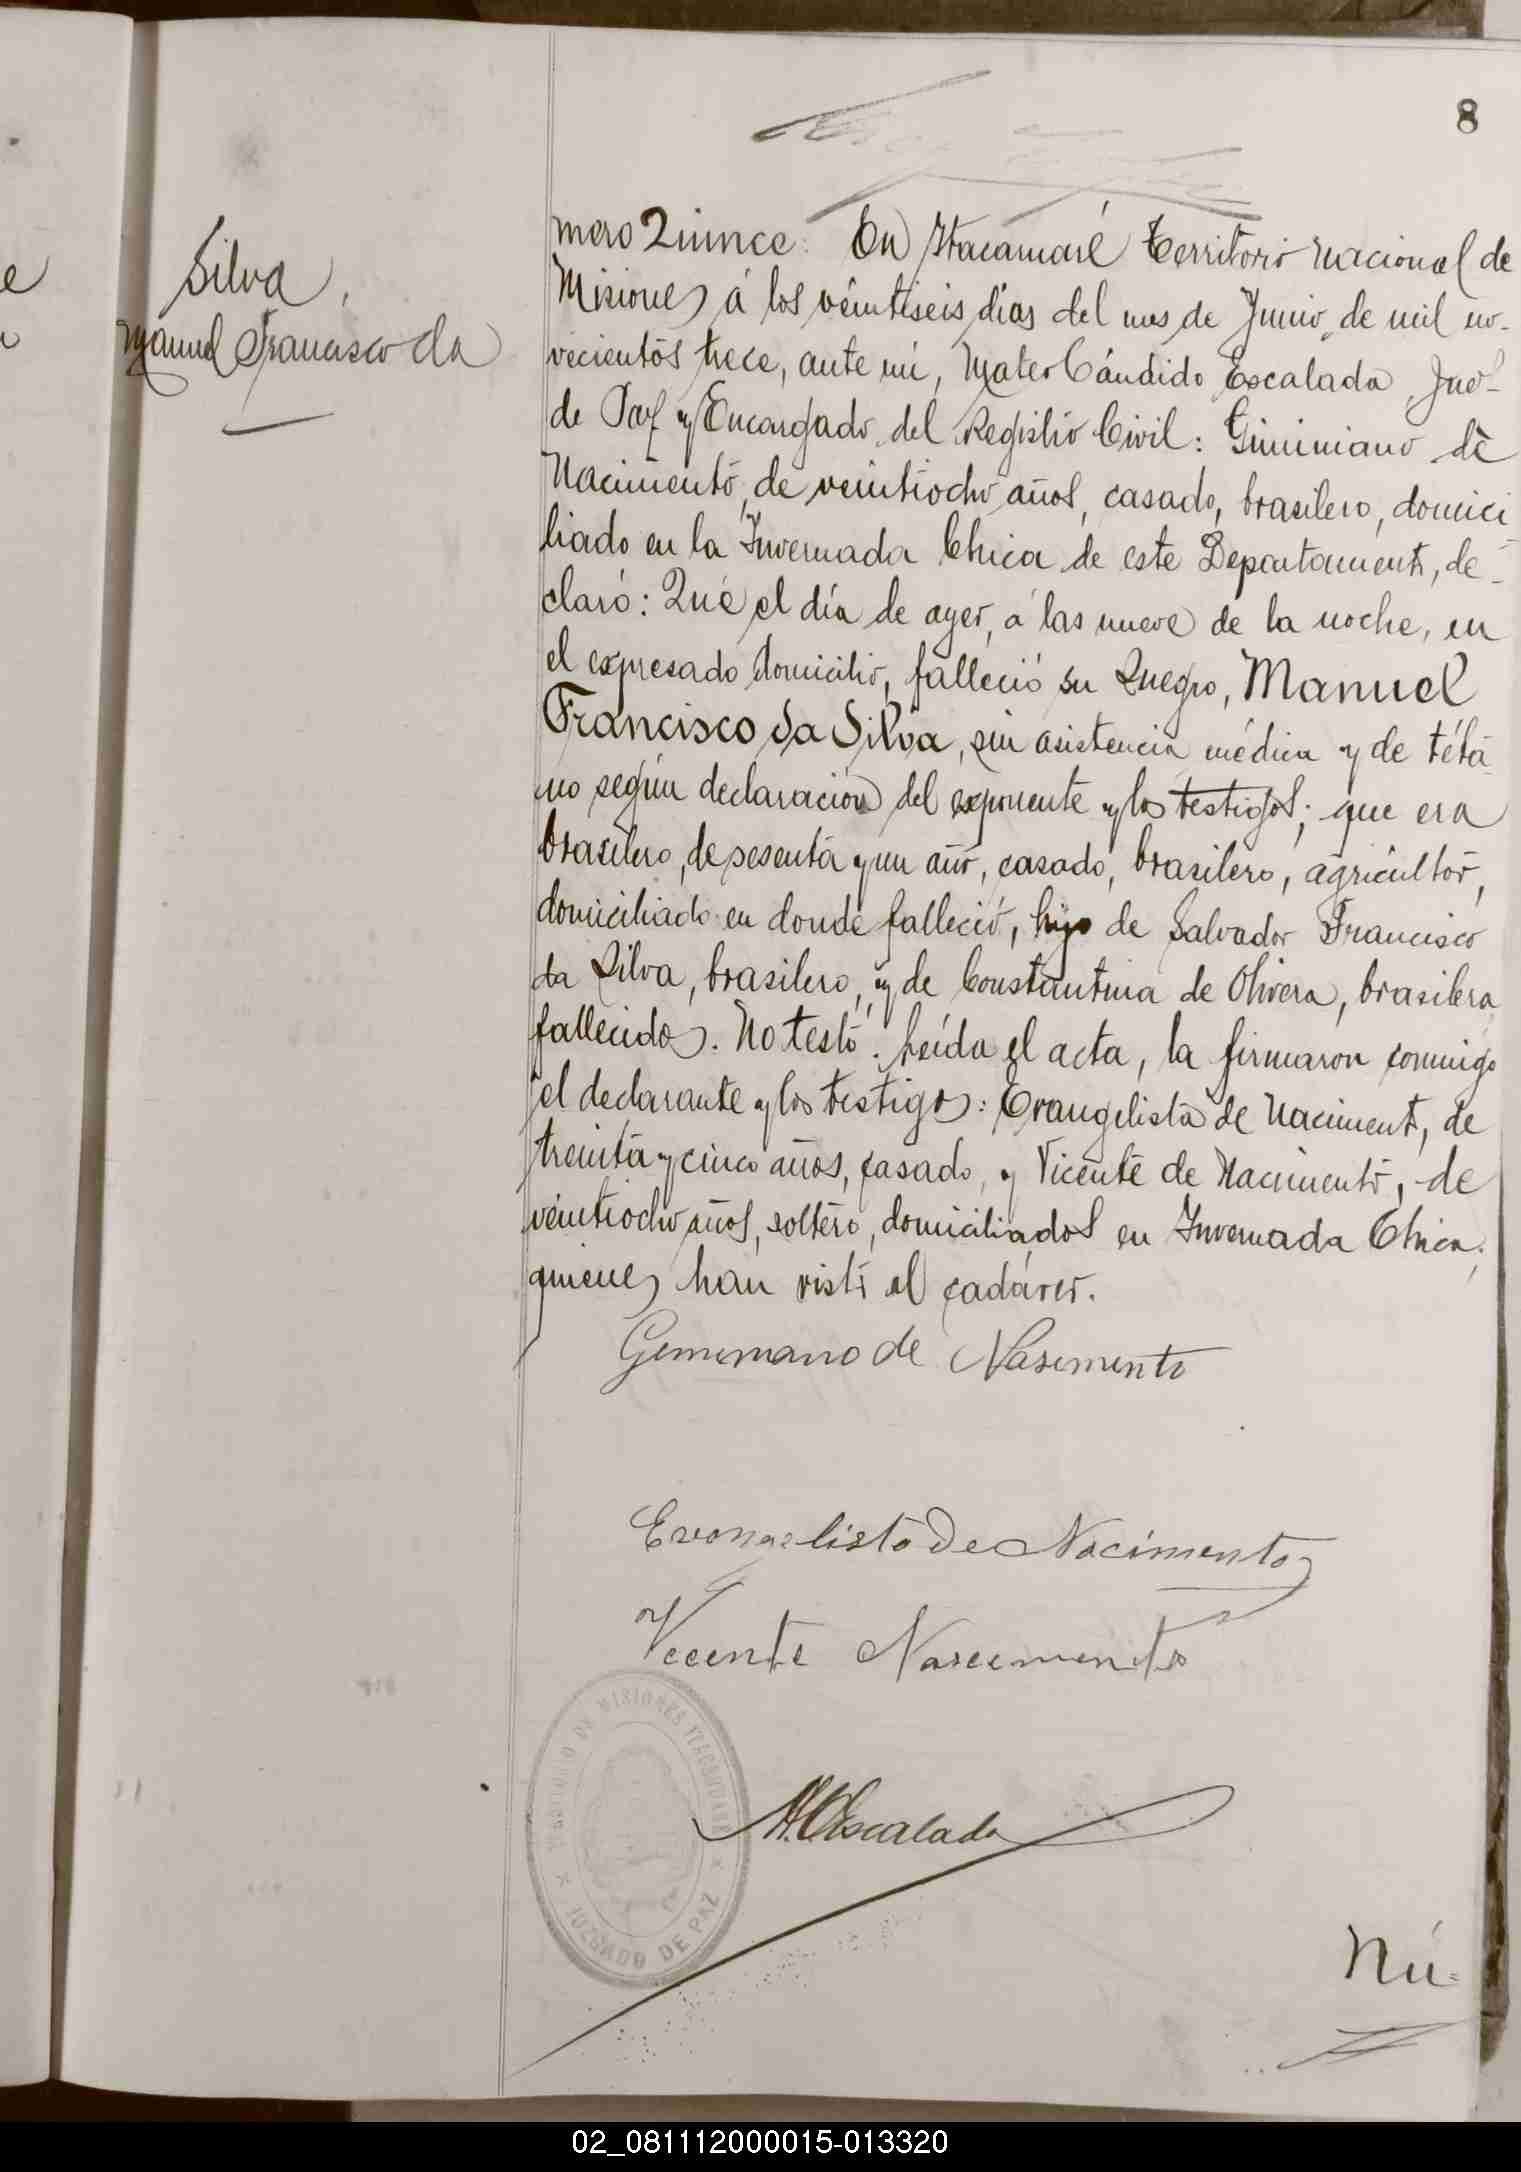 8
Silva,
Manuel Francisco da
mero Quince: En Itacaruaré Territorio Nacional de
Misiones á los veintiseis dias del mes de Junio de mil no-
vecientos trece, ante mí, Mateo Cándido Escalada, Juez
de Paz y Encargado del Registro Civil: Giminiano de
Nacimento, de veintiocho años, casado, brasilero, domici
liado en la Invernada Chica de este Departamento, de-
claró: Qué el día de ayer, á las nueve de la noche, en
el expresado domicilio, falleció su suegro, Manuel
Francisco da Silva, sin asistencia médica y de téta
no según declaración del exponente y los testigos; que era
brasilero, de sesenta y un año, casado, brasilero, agricultor,
domiciliado en donde falleció, hijo de Salvador Francisco
da Silva, brasilero, y de Constantina de Olivera, brasilera,
fallecidos. No testó. Leída el acta, la firmaron conmigo
el declarante y los testigos: Evangelista de Naciment, de
treinta y cinco años, casado, y Vicente de Nacimento, de
veintiocho años, soltero, domiciliados en Invernada Chica,
quienes han visto el cadáver.
Geminiano de Nasimento
Evongelisto de Nocimento
Vecente Nascemento
TERRITORIO DE MISIONES ITACARUARE
JUZGADO DE PAZ
M.C.Escalada
Nú-
02_081112000015-013320